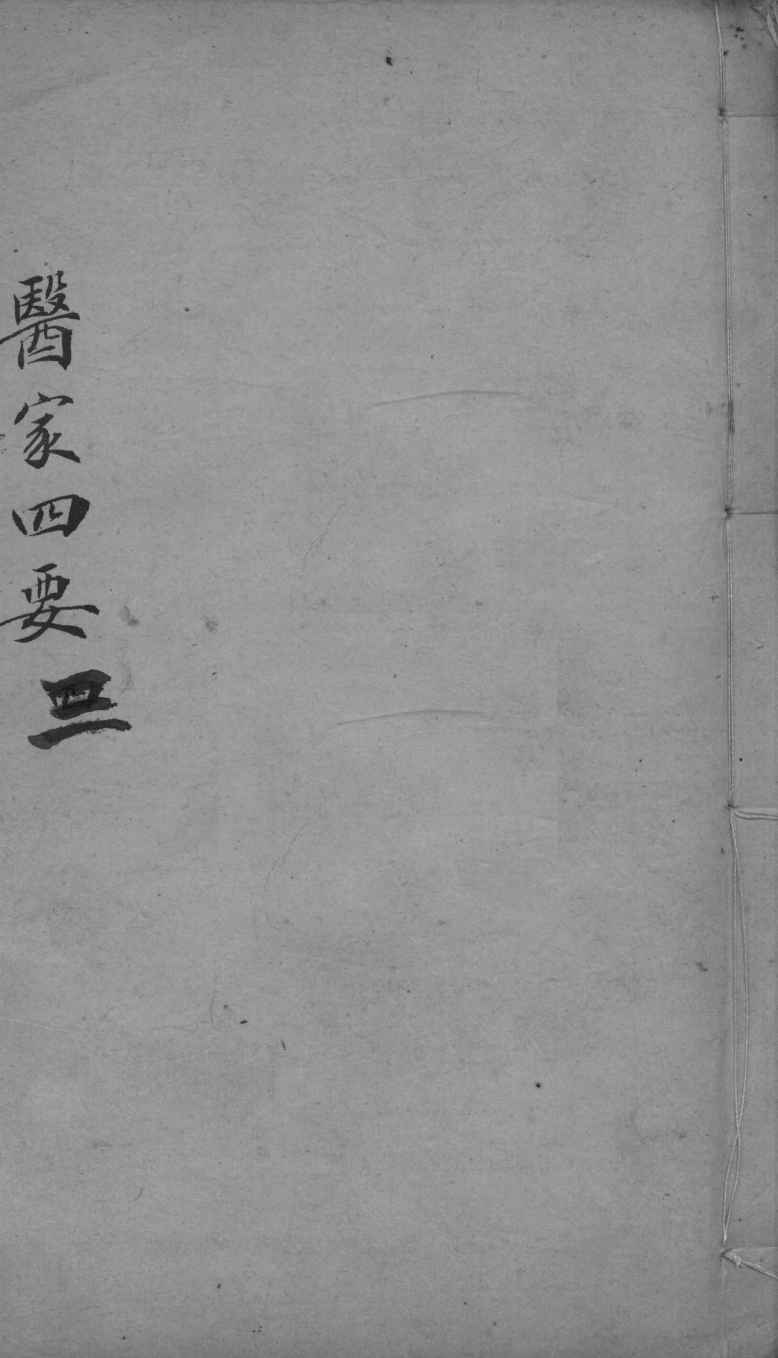 醫家四要 三